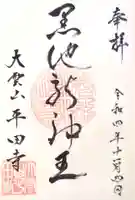 奉拝
令和四年十一月四日
黒池龍神王
大雲山 平田寺